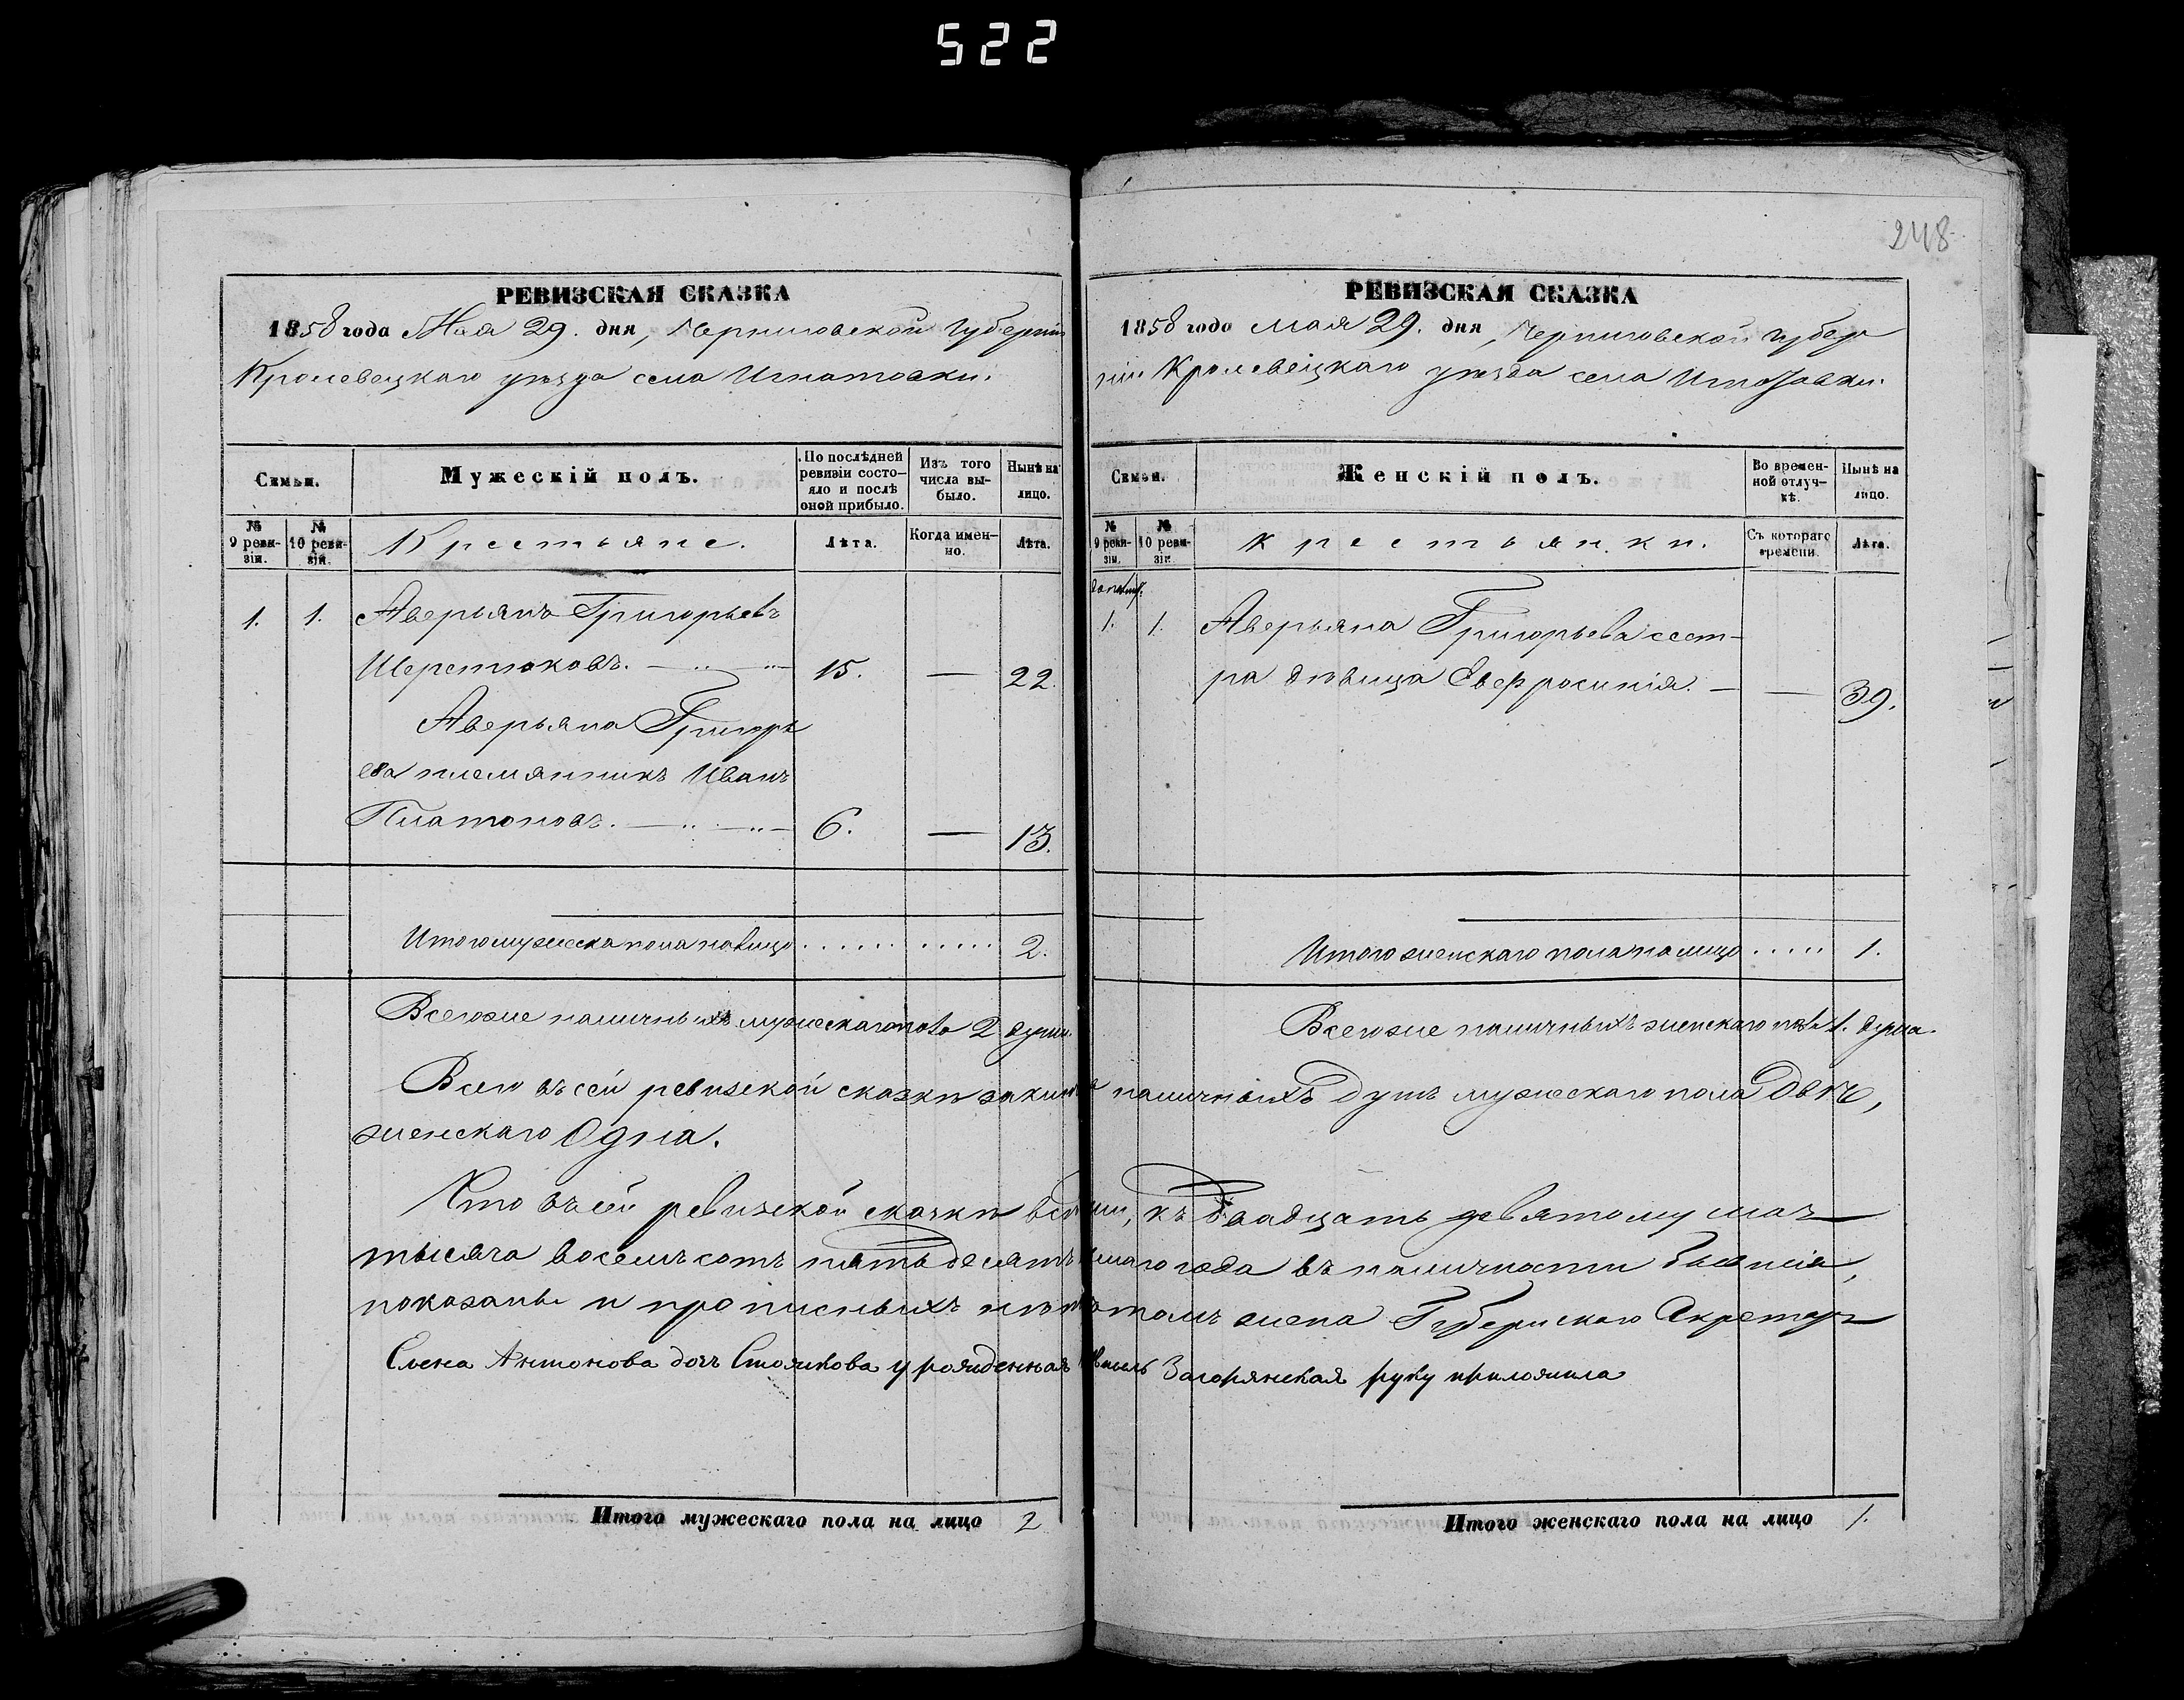 522
248
РЕВИЗСКАЯ СКАЗКА
1858 года Мая 29. дня, Черниговской Губерніи
Кролевецкаго уѣзда села Игнатовки.
Свмьи.
Мужескій полъ.
По послѣдней ревизіи состо-
яло и послѣ оной прибыло.
Изъ того числа вы-
было.
Нынѣ на лицо.
№ 9 реви-
зіи.
№ 10 реви-
зіи.
Крестьяне.
Лѣта.
Когда имен-
но.
Лѣта.
1. 1. Аверьянъ Григорьевъ
Шерстюковъ. 15. — 22.
Аверьяна Григорь
ева племянникъ Иванъ
Платоновъ. 6. — 13.
Итого мужеска пола на лицо 2.
Всего же наличныхъ мужескаго пола 2 души.
РЕВИЗСКАЯ СКАЗКА
1858 года мая 29. дня, Черниговской губер
ніи Кролевецкаго уѣзда села
Свмьи.
Женскій полъ.
Во времен-
ной отлуч-
кѣ.
Нынѣ на лицо.
№ 9 реви-
зіи.
№ 10 реви-
зіи.
Крестьянки.
Съ котораго времени.
Лѣта.
1. 1. Аверьяна Григорьева сест-
ра дѣвица Евфросинія. — — 39.
Итого женскаго пола на лицо 1.
Всего же наличныхъ женскаго пола 1. душа.
Всего въ сей ревизской сказкѣ наличныхъ душъ мужескаго пола Двѣ,
женскаго Одна.
Что въ сей ревизской сказкѣ всѣ къ двадцать девятому мая
тысяча восемъ сотъ пятьдесятъ года въ наличности бывшія,
показаны и прописныхъ нѣтъ въ томъ жена Губернскаго Секретаря
Елена Антонова дочь Стожкова урожденная Загорянская руку приложила
Итого мужескаго пола на лицо 2
Итого женскаго пола на лицо 1.